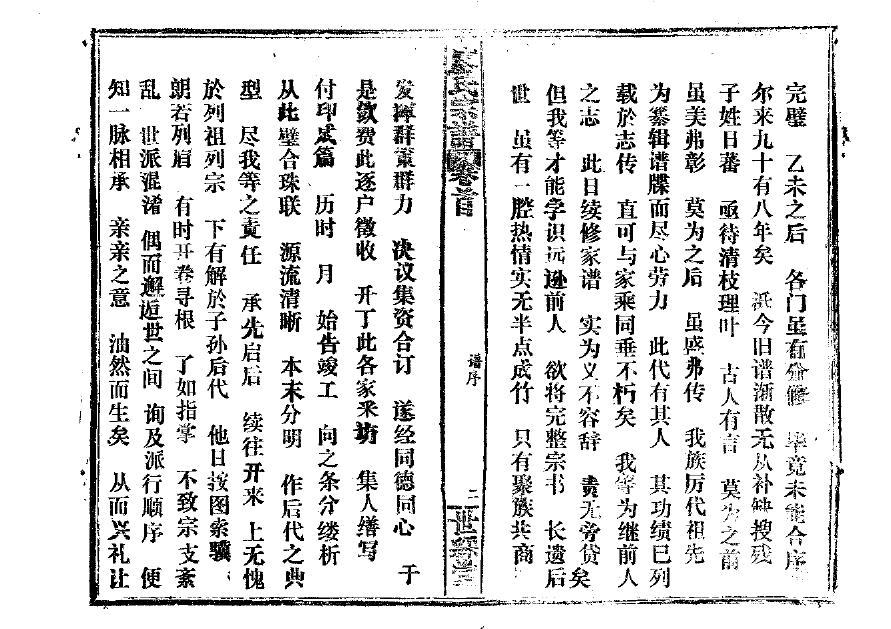 完璧 乙未之后 各门虽有分修 毕竟未能合序
尔来九十有八年矣 派今旧谱渐散无从补缺搜残
子姓日蕃 亟待清枝理叶 古人有言 莫为之前
虽美弗彰 莫为之后 虽盛弗传 我族历代祖先
为纂辑谱牒而尽心劳力 此代有其人 其功绩已列
载於志传 直可与家乘同垂不朽矣 我等为继前人
之志 此日续修家谱 实为义不容辞 责无旁贷矣
但我等才能学识远逊前人 欲将完整宗书 长遗后
世 虽有一腔热情实无半点成竹 只有聚族共商
氏宗谱 卷首
谱序
二
发挥群策群力 决议集资合订 遂经同德同心 于
是敛费此逐户徵收 开丁此各家采访 集人缮写
付印成篇 历时 月 始告竣工 向之条分缕析
从此璧合珠联 源流清晰 本末分明 作后代之典
型 尽我等之责任 承先启后 续往开来 上无愧
於列祖列宗 下有解於子孙后代 他日按图索骥
朗若列眉 有时开卷寻根 了如指掌 不致宗支紊
乱 世派混淆 偶而邂逅世之间 询及派行顺序 便
知一脉相承 亲亲之意 油然而生矣 从而兴礼让